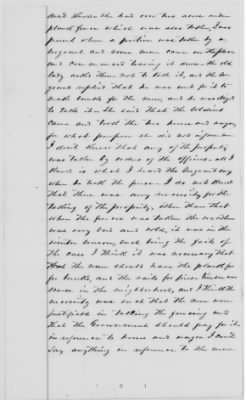 and Horse the had over two acres in
plank fence which was also taken I was
present when a portion was taken by a
sergeant and some men came on the prem
ises commenced tearing it down the old
lady asked them not to take it, and the ser
geant replied that he was sent for it to
make bunks for the men, and he was obliged
to take it she said that the soldiers
came and took the two horses and wagon
for what purpose she did not inform me
I don't know that any of the property
was taken by orders of the officers all I
know is what I heard the Sergeant say
when he took the fence I do not know
that there was any necessity for the
taking of the property, other than that
when the fence was taken the weather
was very bad and cold, it was in the
winter season, such being the facts of
the case I think it was necessary that
that the men should have the plank for
for bunks, and the rails for fires timber was
scarce in the neighborhood, and I think the
necessity was such that the men were
justified in taking the fencing and
that the Government should pay for it
in reference to horses and wagon I can't
say anything in reference to the neces